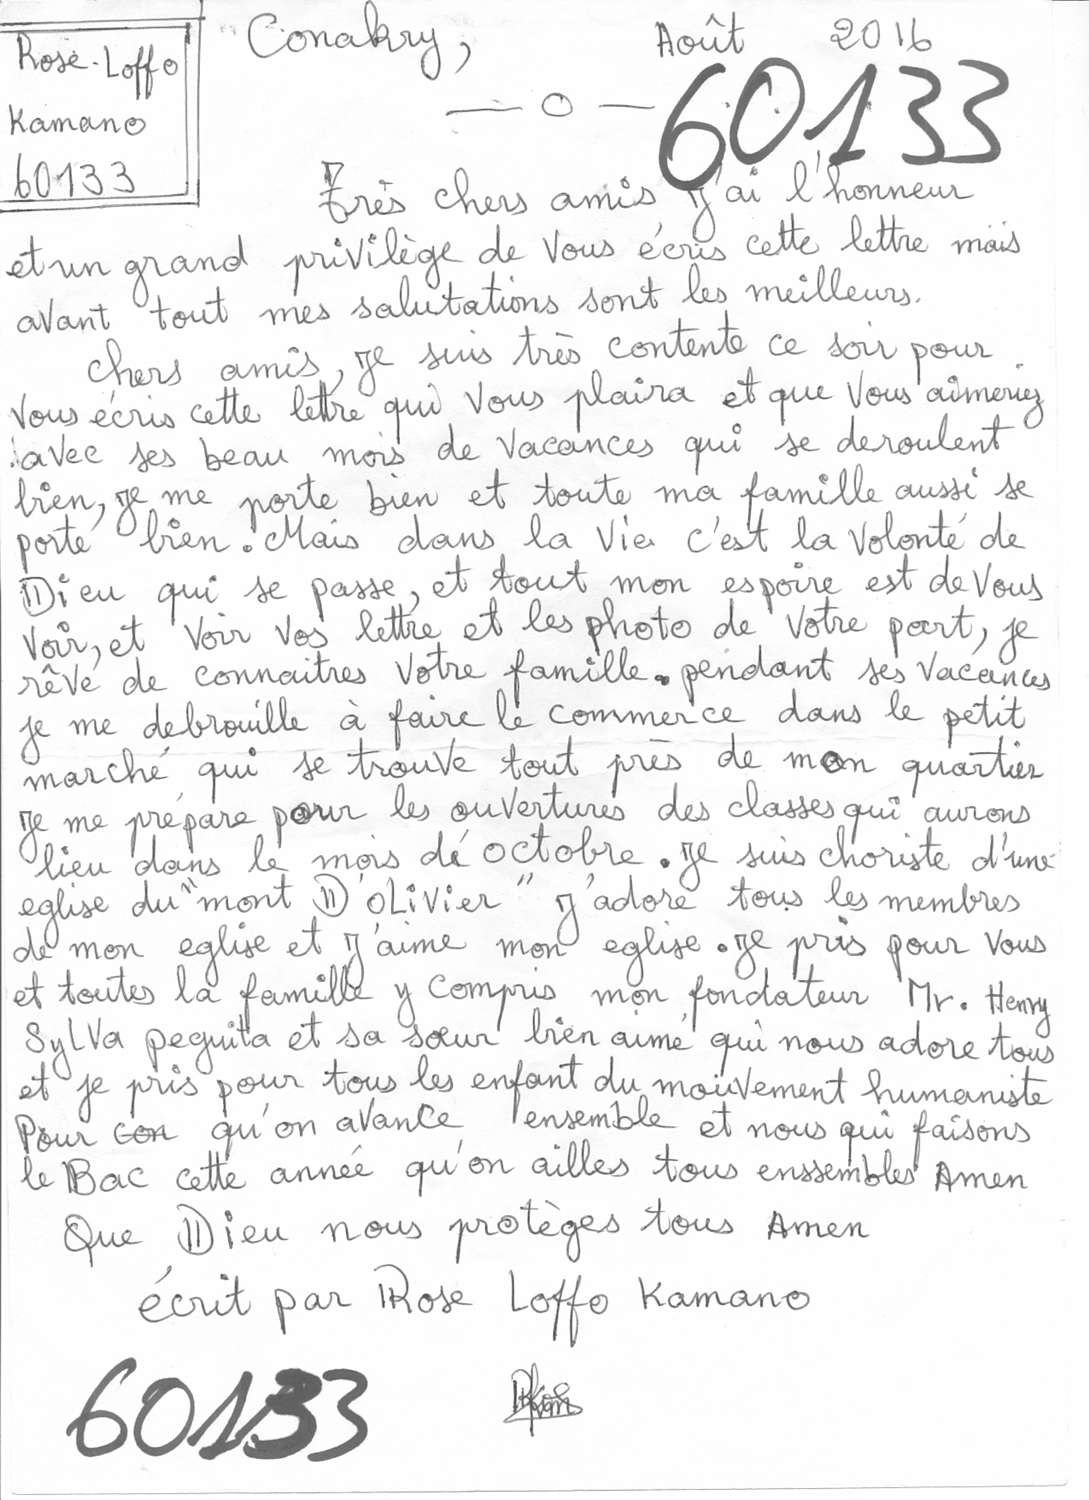 Rose-Loffo
Kamano
60133
Conakry, Août 2016
— o —
60133
très chers amis j'ai l'honneur
et un grand privilège de vous écris cette lettre mais
avant tout mes salutations sont les meilleurs.
chers amis, je suis très contente ce soir pour
vous écris cette lettre qui vous plaira et que vous aimeriez
avec ses beau mois de vacances qui se deroulent
bien, je me porte bien et toute ma famille aussi se
porte bien. Mais dans la vie c'est la volonté de
Dieu qui se passe, et tout mon espoire est de vous
voir, et voir vos lettre et les photo de votre part, je
rêve de connaitres votre famille. pendant ses vacances
je me debrouille à faire le commerce dans le petit
marché qui se trouve tout près de mon quartier
je me prépare pour les ouvertures des classes qui aurons
lieu dans le mois de octobre. je suis choriste d'une
eglise du "mont D'oLivier" j'adore tous les membres
de mon eglise et j'aime mon eglise. je pris pour vous
et toutes la famille y compris mon fondateur Mr. Henry
SyLVa peguita et sa sœur bien aimé qui nous adore tous
et je pris pour tous les enfant du mouvement humaniste
Pour qu'on avance ensemble et nous qui faisons
le Bac cette année qu'on ailles tous enssembles Amen
Que Dieu nous protèges tous Amen
écrit par Rose Loffo Kamano
60133